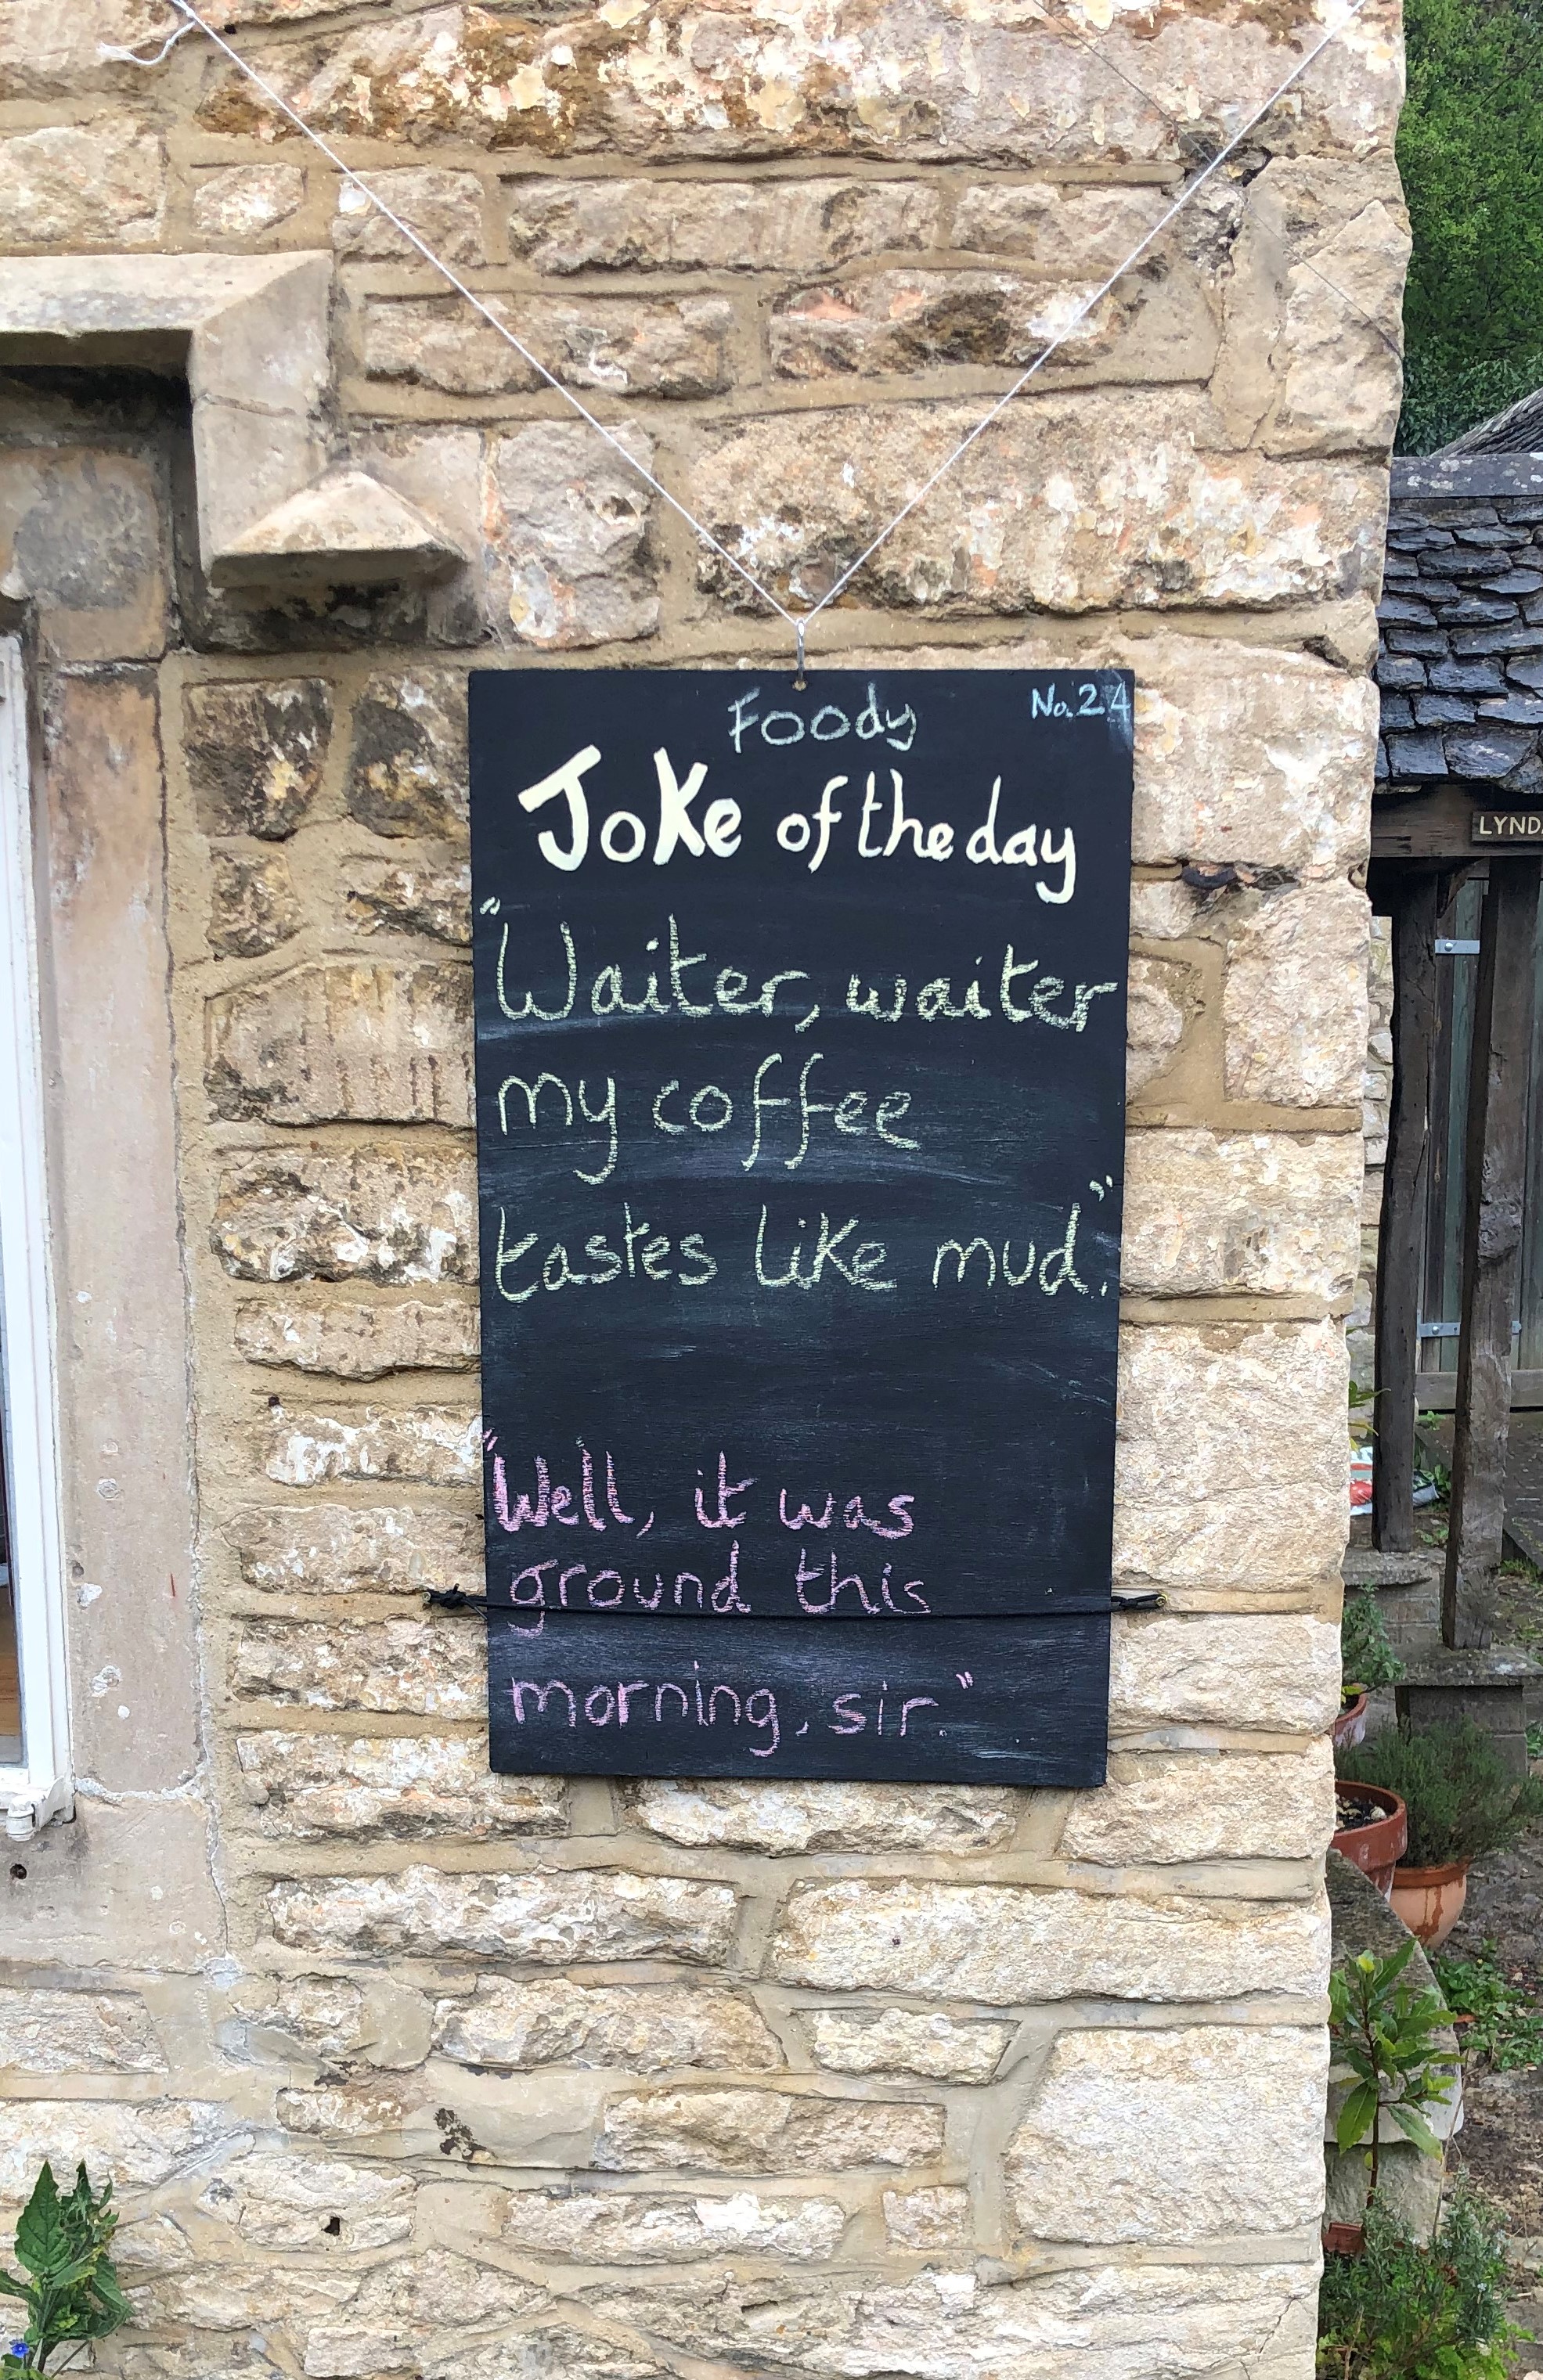 Foody
No.24
Joke of the day
"Waiter, waiter
my coffee
tastes like mud."
"Well, it was
ground this
morning, sir."